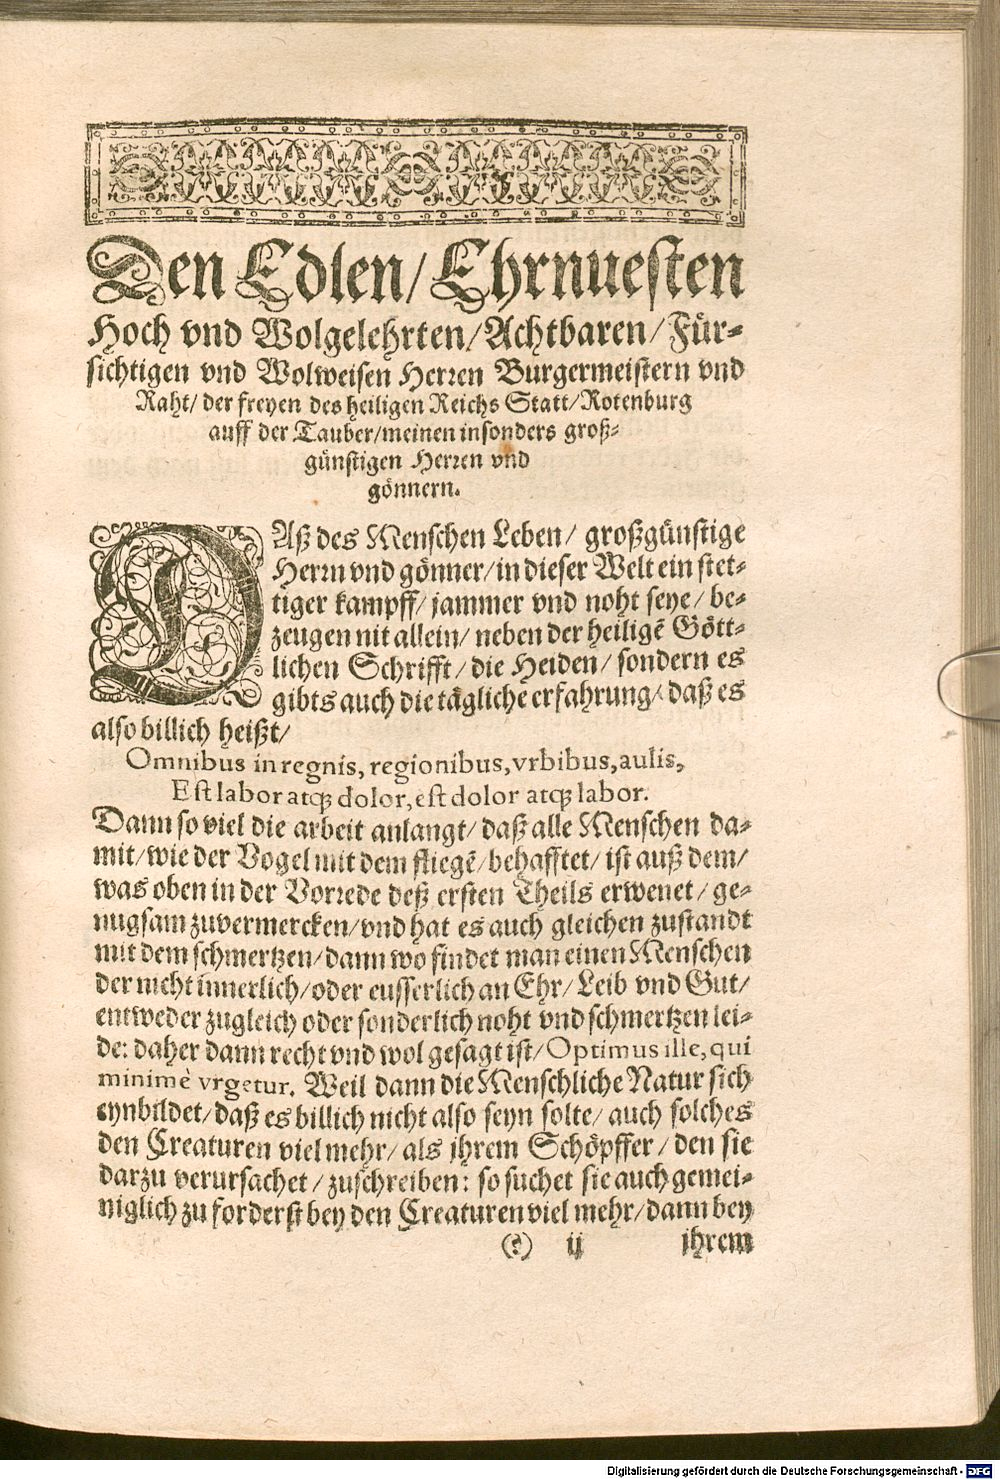 Den Edlen/ Ehrnuesten
Hoch vnd Wolgelehrten/ Achtbaren/ Für-
sichtigen vnd Wolweisen Herren Burgermeistern vnd
Raht/ der freyen des heiligen Reichs Statt/ Rotenburg
auff der Tauber/ meinen insonders groß-
günstigen Herren vnd
gönnern.
DAß des Menschen Leben/ großgünstige
Herrn vnd gönner/ in dieser Welt ein stet-
tiger kampff/ jammer vnd noht seye/ be-
zeugen nit allein/ neben der heiligē Gött-
lichen Schrifft/ die Heiden/ sondern es
gibts auch die tägliche erfahrung/ daß es
also billich heißt/
Omnibus in regnis, regionibus, vrbibus, aulis,
Est labor atq; dolor, est dolor atq; labor.
Dann so viel die arbeit anlangt/ daß alle Menschen da-
mit/ wie der Vogel mit dem fliegē/ behafftet/ ist auß dem/
was oben in der Vorrede deß ersten Theils erwenet/ ge-
nugsam zuvermercken/ vnd hat es auch gleichen zustandt
mit dem schmertzen/ dann wo findet man einen Menschen
der nicht innerlich/ oder eusserlich an Ehr/ Leib vnd Gut/
entweder zugleich oder sonderlich noht vnd schmertzen lei-
de: daher dann recht vnd wol gesagt ist/ Optimus ille, qui
minimè vrgetur. Weil dann die Menschliche Natur sich
eynbildet/ daß es billich nicht also seyn solte/ auch solches
den Creaturen viel mehr/ als jhrem Schöpffer/ den sie
darzu verursachet/ zuschreiben: so suchet sie auch gemei-
niglich zu forderst bey den Creaturen viel mehr/ dann bey
(?) ij jhrem
Digitalisierung gefördert durch die Deutsche Forschungsgemeinschaft - DFG